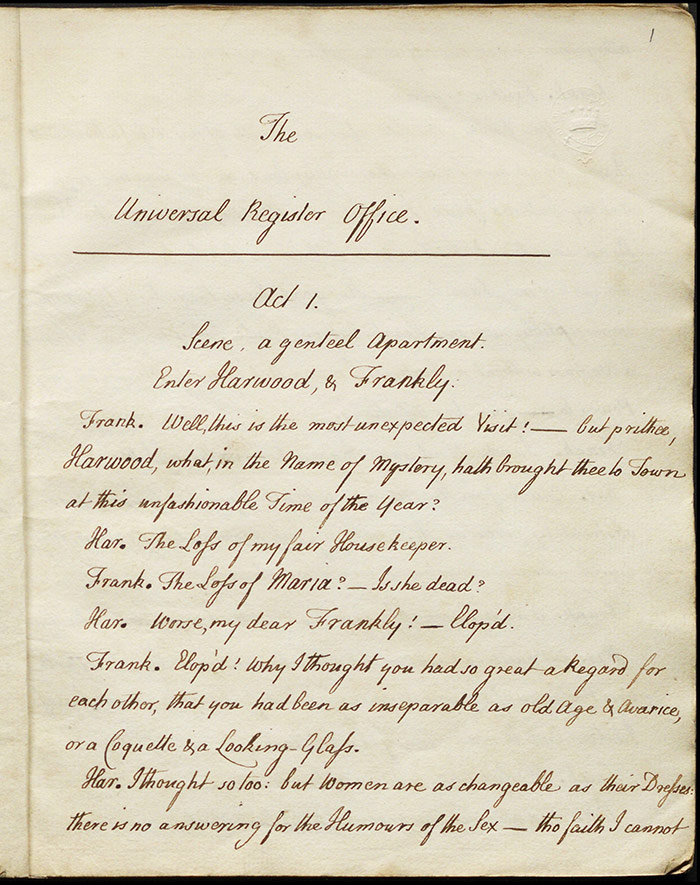 1
The
Universal Register Office.
Act 1.
Scene, a genteel Apartment.
Enter Harwood, & Frankly.
Frank. Well, this is the most unexpected Visit! — but prithee,
Harwood, what, in the Name of Mystery, hath brought thee to Town
at this unfashionable Time of the Year?
Har. The Loſs of my fair Housekeeper.
Frank. The Loſs of Maria? — Is she dead?
Har. Worse, my dear Frankly! — Elop'd.
Frank. Elop'd! Why I thought you had so great a Regard for
each other, that you had been as inseparable as old Age & Avarice,
or a Coquette & a Looking-Glaſs.
Har. I thought so too: but Women are as changeable as their Dreſses:
there is no answering for the Humours of the Sex — tho faith I cannot